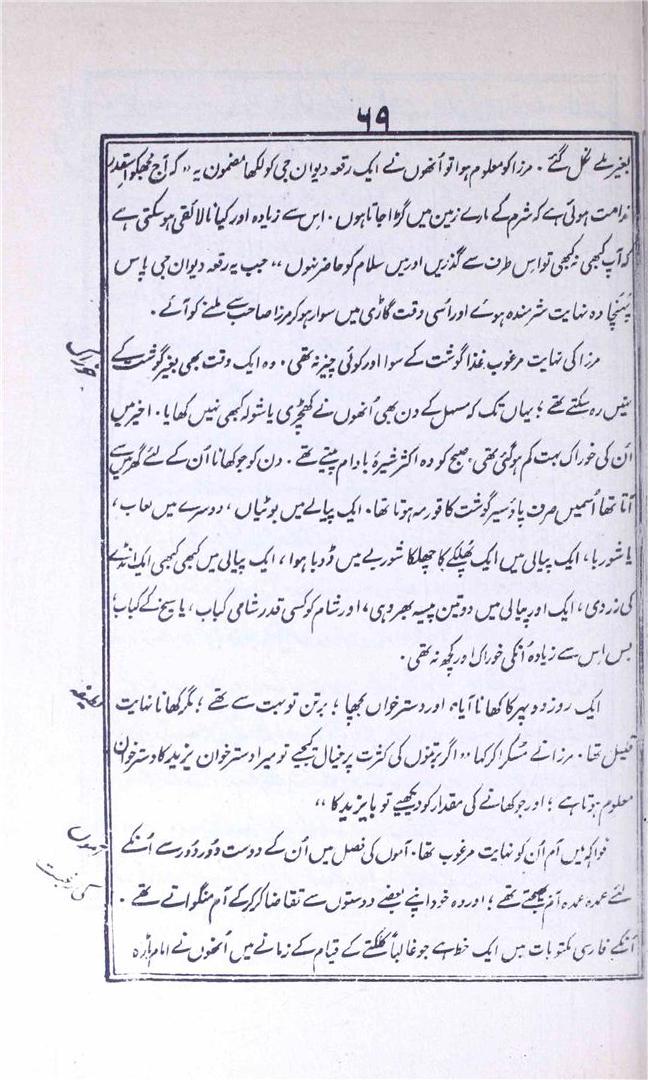 ۶۹
بغیر ملے نکل گئے ۔ مرزا کو معلوم ہوا تو اُنھوں نے ایک رقعہ دیوان جی کو لکھا مضمون یہ „ کہ آج مجھکو اسقدر
ندامت ہوئی ہے کہ شرم کے مارے زمین میں گڑا جاتا ہوں ۔ اس سے زیادہ اور کیا نالائقی ہو سکتی ہے
کہ آپ کبھی نہ کبھی تو اس طرف سے گذریں اور میں سلام کو حاضر نہوں „ جب یہ رقعہ دیوان جی پاس
پُہنچا وہ نہایت شرمندہ ہوے اور اُسی وقت گاڑی میں سوار ہو کر مرزا صاحب سے ملنے کو آئے ۔
خوراک
مرزا کی نہایت مرغوب غذا گوشت کے سوا اور کوئی چیز نہ تھی ۔ وہ ایک وقت بھی بغیر گوشت کے
نہیں رہ سکتے تھے ؛ یہاں تک کہ مسہل کے دن بھی اُنھوں نے کھچڑی یا شولہ کبھی نہیں کھایا ۔ اخیر میں
اُن کی خوراک بہت کم ہو گئی تھی ۔ صبح کو وہ اکثر شیرۂ بادام پیتے تھے ۔ دن کو جو کھانا اُن کے لئے گھر میں سے
آتا تھا اُسمیں صرف پاؤ سیر گوشت کا قورمہ ہوتا تھا ۔ ایک پیالے میں بوٹیاں ، دوسرے میں لعاب ،
یا شوربا ، ایک پیالی میں ایک پھلکے کا چھلکا شوربے میں ڈوبا ہوا ، ایک پیالی میں کبھی کبھی ایک انڈے
کی زردی ، ایک اور پیالی میں دو تین پیسہ بھر دہی ، اور شام کو کسی قدر شامی کباب ، یا سیخ کے کباب ؛
بس اس سے زیادہ اُنکی خوراک اور کچھ نہ تھی ۔
لطیفہ
ایک روز دوپہر کا کھانا آیا ، اور دسترخوان بچھا ؛ برتن تو بہت سے تھے ؛ مگر کھانا نہایت
قلیل تھا ۔ مرزا نے مُسکرا کر کہا „ اگر برتنوں کی کثرت پر خیال کیجیے تو میرا دسترخوان یزید کا دسترخوان
معلوم ہوتا ہے ؛ اور جو کھانے کی مقدار کو دیکھیے تو بایزید کا „
آموں
کی رغبت
فواکہ میں آم اُن کو نہایت مرغوب تھا ۔ آموں کی فصل میں اُن کے دوست دُور دُور سے اُنکے
لئے عمدہ عمدہ آم بھیجتے تھے ؛ اور وہ خود اپنے بعضے دوستوں سے تقاضا کر کر کے آم منگواتے تھے ۔
اُنکے فارسی مکتوبات میں ایک خط ہے جو غالباً کلکتے کے قیام کے زمانے میں اُنھوں نے امام باڑہ